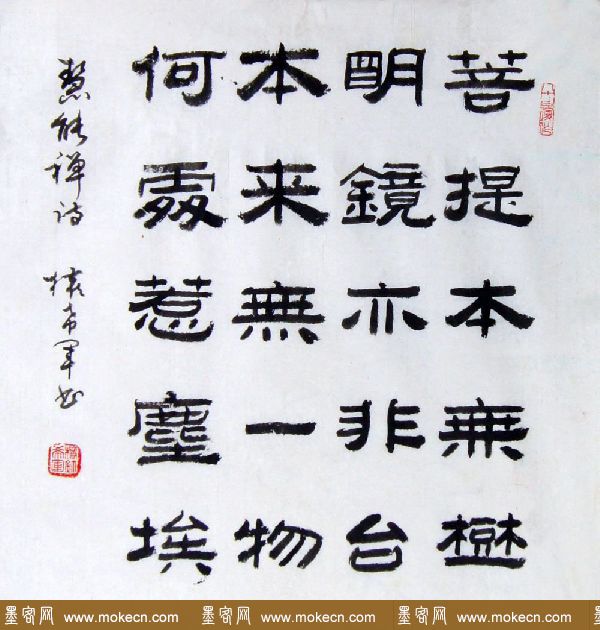 菩提本無樹
明鏡亦非台
本来無一物
何處惹塵埃
慧能禅诗 希军书
墨客网 www.mokecn.com 墨客网 www.mokecn.com 墨客网 www.mokecn.com